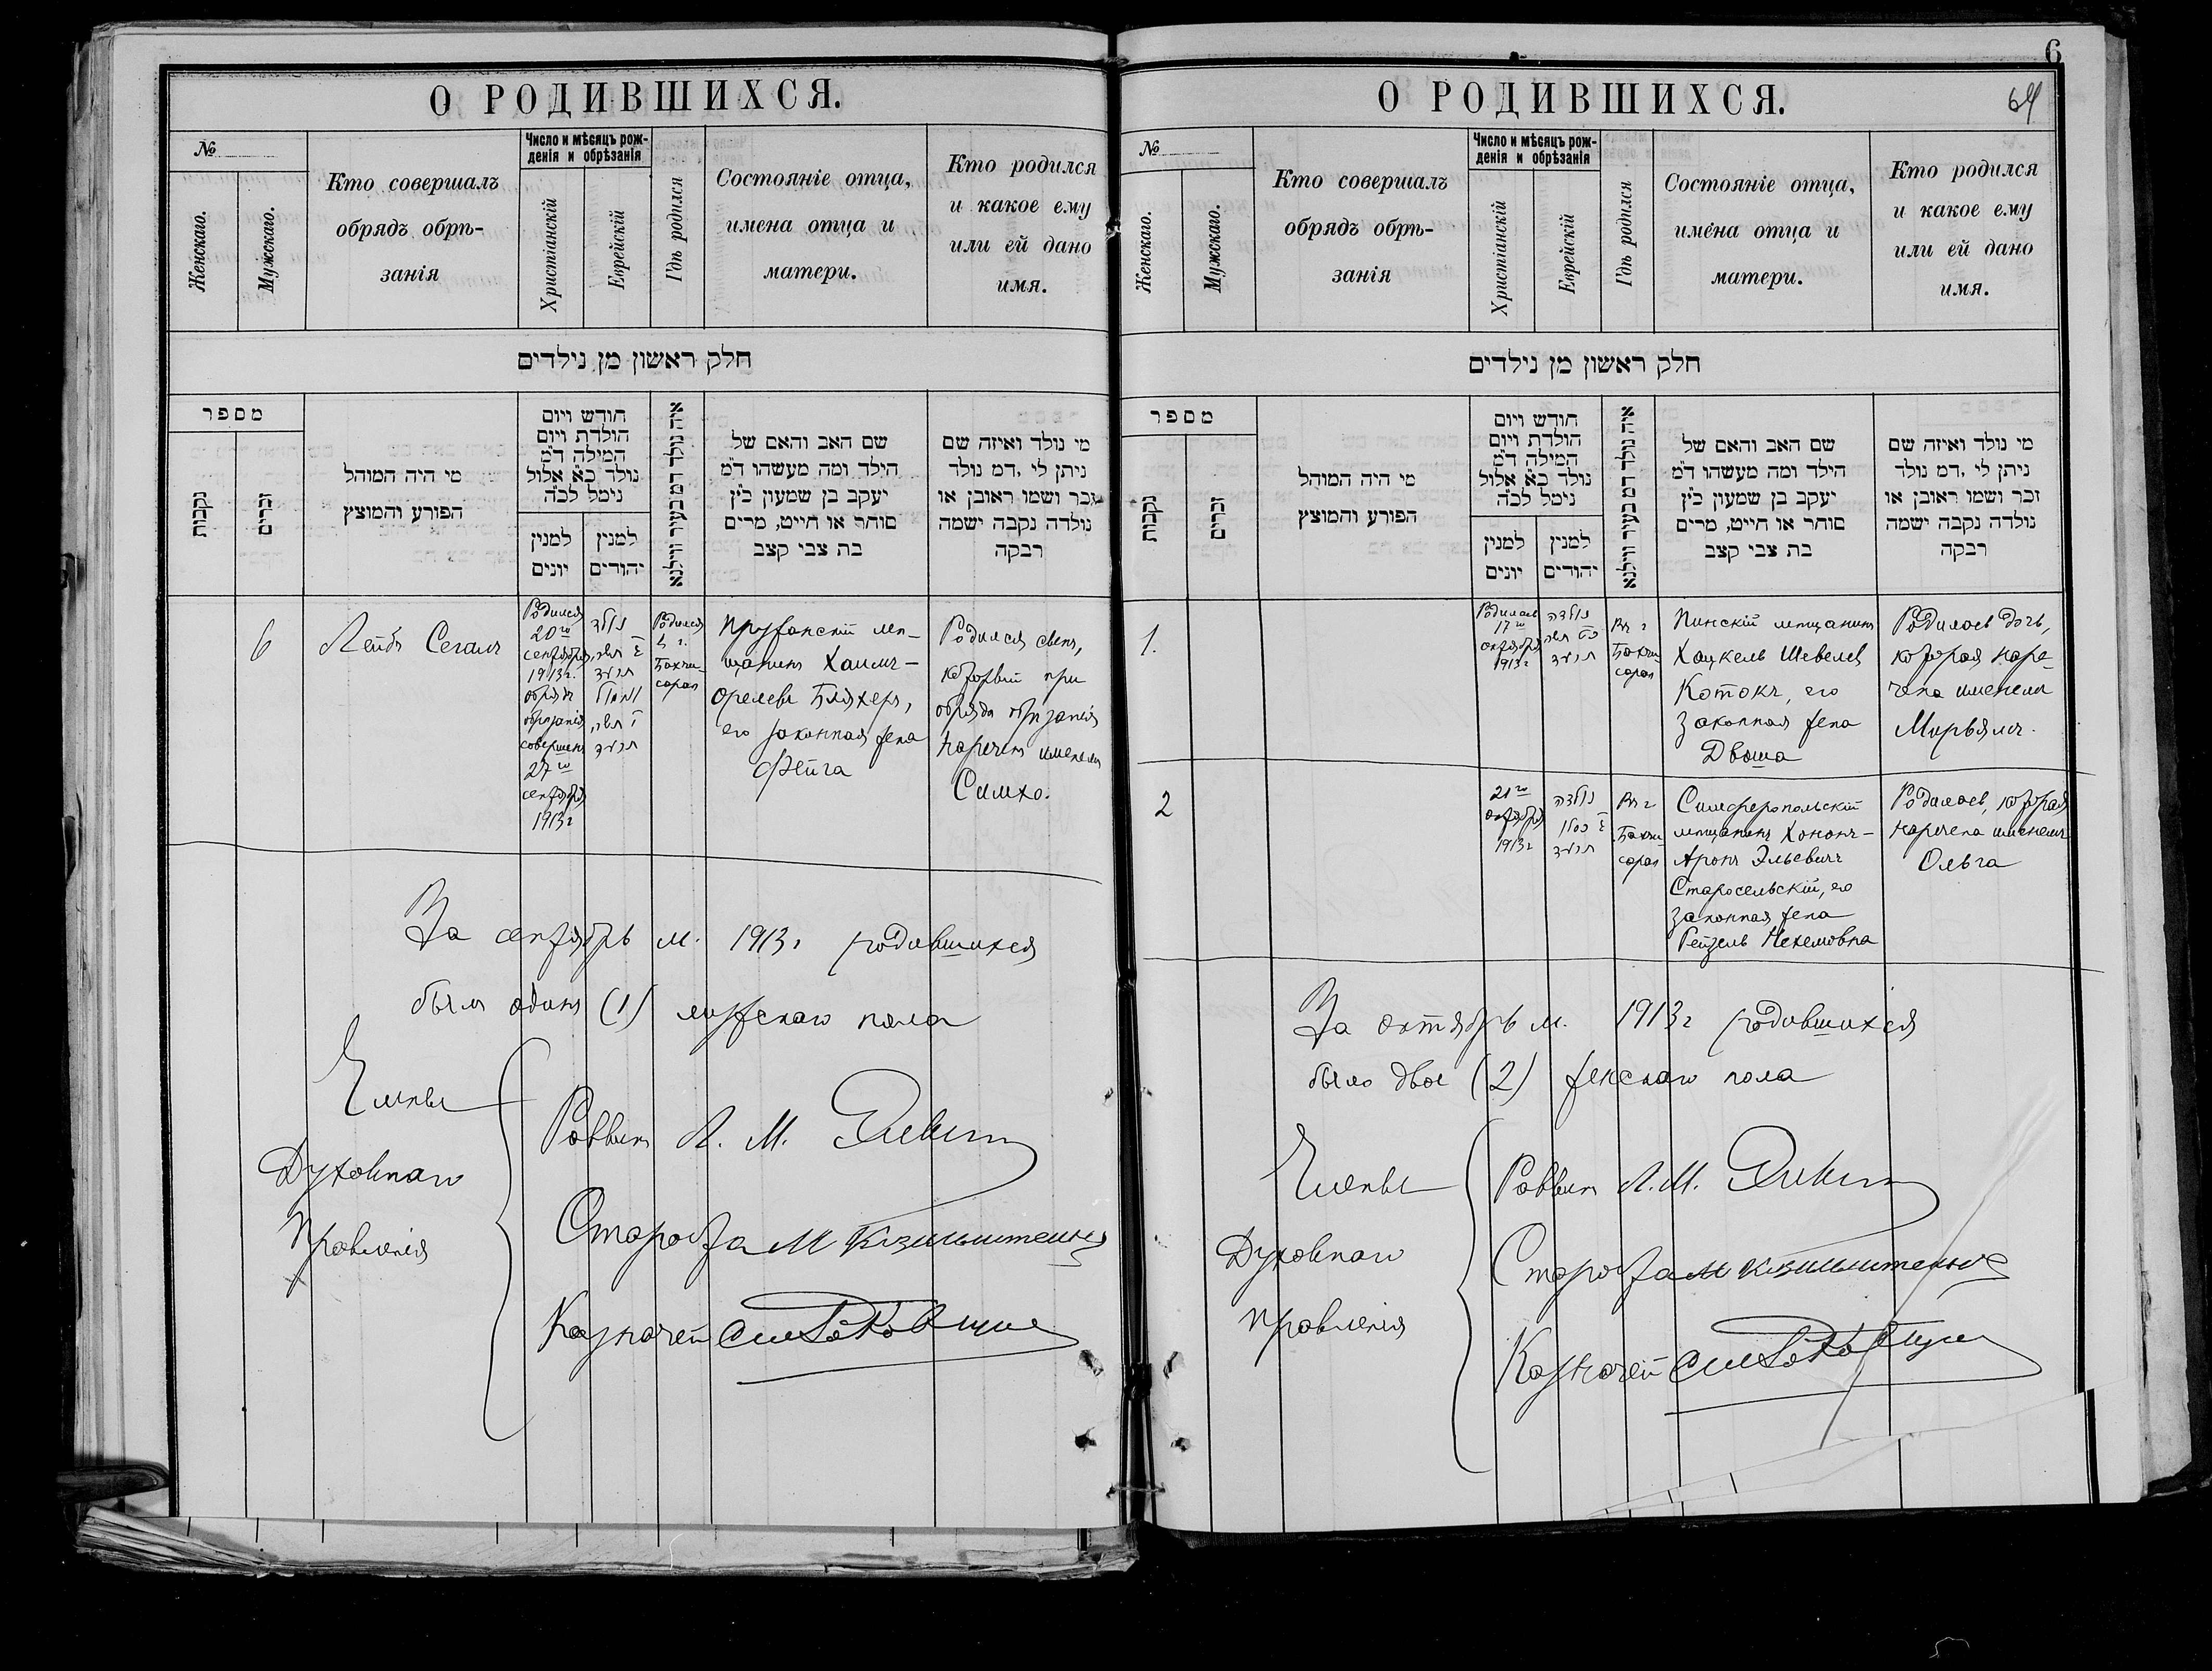 О РОДИВШИХСЯ.
№
Женскаго.
Мужскаго.
Кто совершалъ
обрядъ обрѣ-
занія
Число и мѣсяцъ рож-
денія и обрѣзанія
Христіанскій
Еврейскій
Гдѣ родился
Состояніе отца,
имена отца и
матери.
Кто родился
и какое ему
или ей дано
имя.
חלק ראשון מן נילדים
מספר
נקבות
זכרים
מי היה המוהל
הפורע והמוצץ
חודש ויום
הולדת ויום
המילה ד״מ
נולד כ״א אלול
נימל לכ״ה
למנין
יונים
למנין
יהודים
איה נולד דם בעיר ווילנא
שם האב והאם של
הילד ומה מעשהו ד״מ
יעקב בן שמעון כ״ץ
סוחר או חייט, מרים
בת צבי קצב
מי נולד ואיזה שם
ניתן לי ,דמ נולד
זכר ושמו ראובן או
נולדה נקבה ישמה
רבקה
6
Лейбъ Сегалъ
Родился
20го
сентября
1913г.
обрядъ
обрѣзанія
совершенъ
27го
сентября
1913г
נולד
תשרי
תרעד
נימול
תשרי
תרעד
Родился
въ г.
Бахчи-
сараѣ
Пружанскій мѣ-
щанинъ Хаимъ-
Орелевъ Бляхеръ,
его законная жена
Фейга
Родился сынъ,
который при
обрядѣ обрѣзанія
нареченъ именемъ
Симхо.
За сентябрь м. 1913г родившихся
былъ одинъ (1) мужскаго пола
Члены
Духовнаго
Правленія
Раввинъ Л. М.
Староста М Кизильштейнъ
Казначей
6
64
О РОДИВШИХСЯ.
№
Женскаго.
Мужскаго.
Кто совершалъ
обрядъ обрѣ-
занія
Число и мѣсяцъ рож-
денія и обрѣзанія
Христіанскій
Еврейскій
Гдѣ родился
Состояніе отца,
имена отца и
матери.
Кто родился
и какое ему
или ей дано
имя.
חלק ראשון מן נילדים
מספר
נקבות
זכרים
מי היה המוהל
הפורע והמוצץ
חודש ויום
הולדת ויום
המילה ד״מ
נולד כ״א אלול
נימל לכ״ה
למנין
יונים
למנין
יהודים
איה נולד דם בעיר ווילנא
שם האב והאם של
הילד ומה מעשהו ד״מ
יעקב בן שמעון כ״ץ
סוחר או חייט, מרים
בת צבי קצב
מי נולד ואיזה שם
ניתן לי ,דמ נולד
זכר ושמו ראובן או
נולדה נקבה ישמה
רבקה
1.
Родилась
17го
октября
1913г
נולדה
כט תשרי
תרעד
Въ г
Бахчи-
сараѣ
Пинскій мѣщанинъ
Хацкель Шевелев
Котокъ, его
законная жена
Двоша
Родилась дочь,
которая наре-
чена именемъ
Мирьямъ.
2
21го
октября
1913г
נולדה
כסלו
תרעד
Въ г
Бахчи-
сараѣ
Симферопольскій
мѣщанинъ Хононъ-
Аронъ Эльевичъ
Старосельскій, его
законная жена
Рейзель Нехемовна
Родилась, которая
наречена именемъ
Ольга
За октябрь м. 1913г родившихся
было двое (2) женскаго пола
Члены
Духовнаго
Правленія
Раввинъ Л. М.
Староста М Кизильштейнъ
Казначей